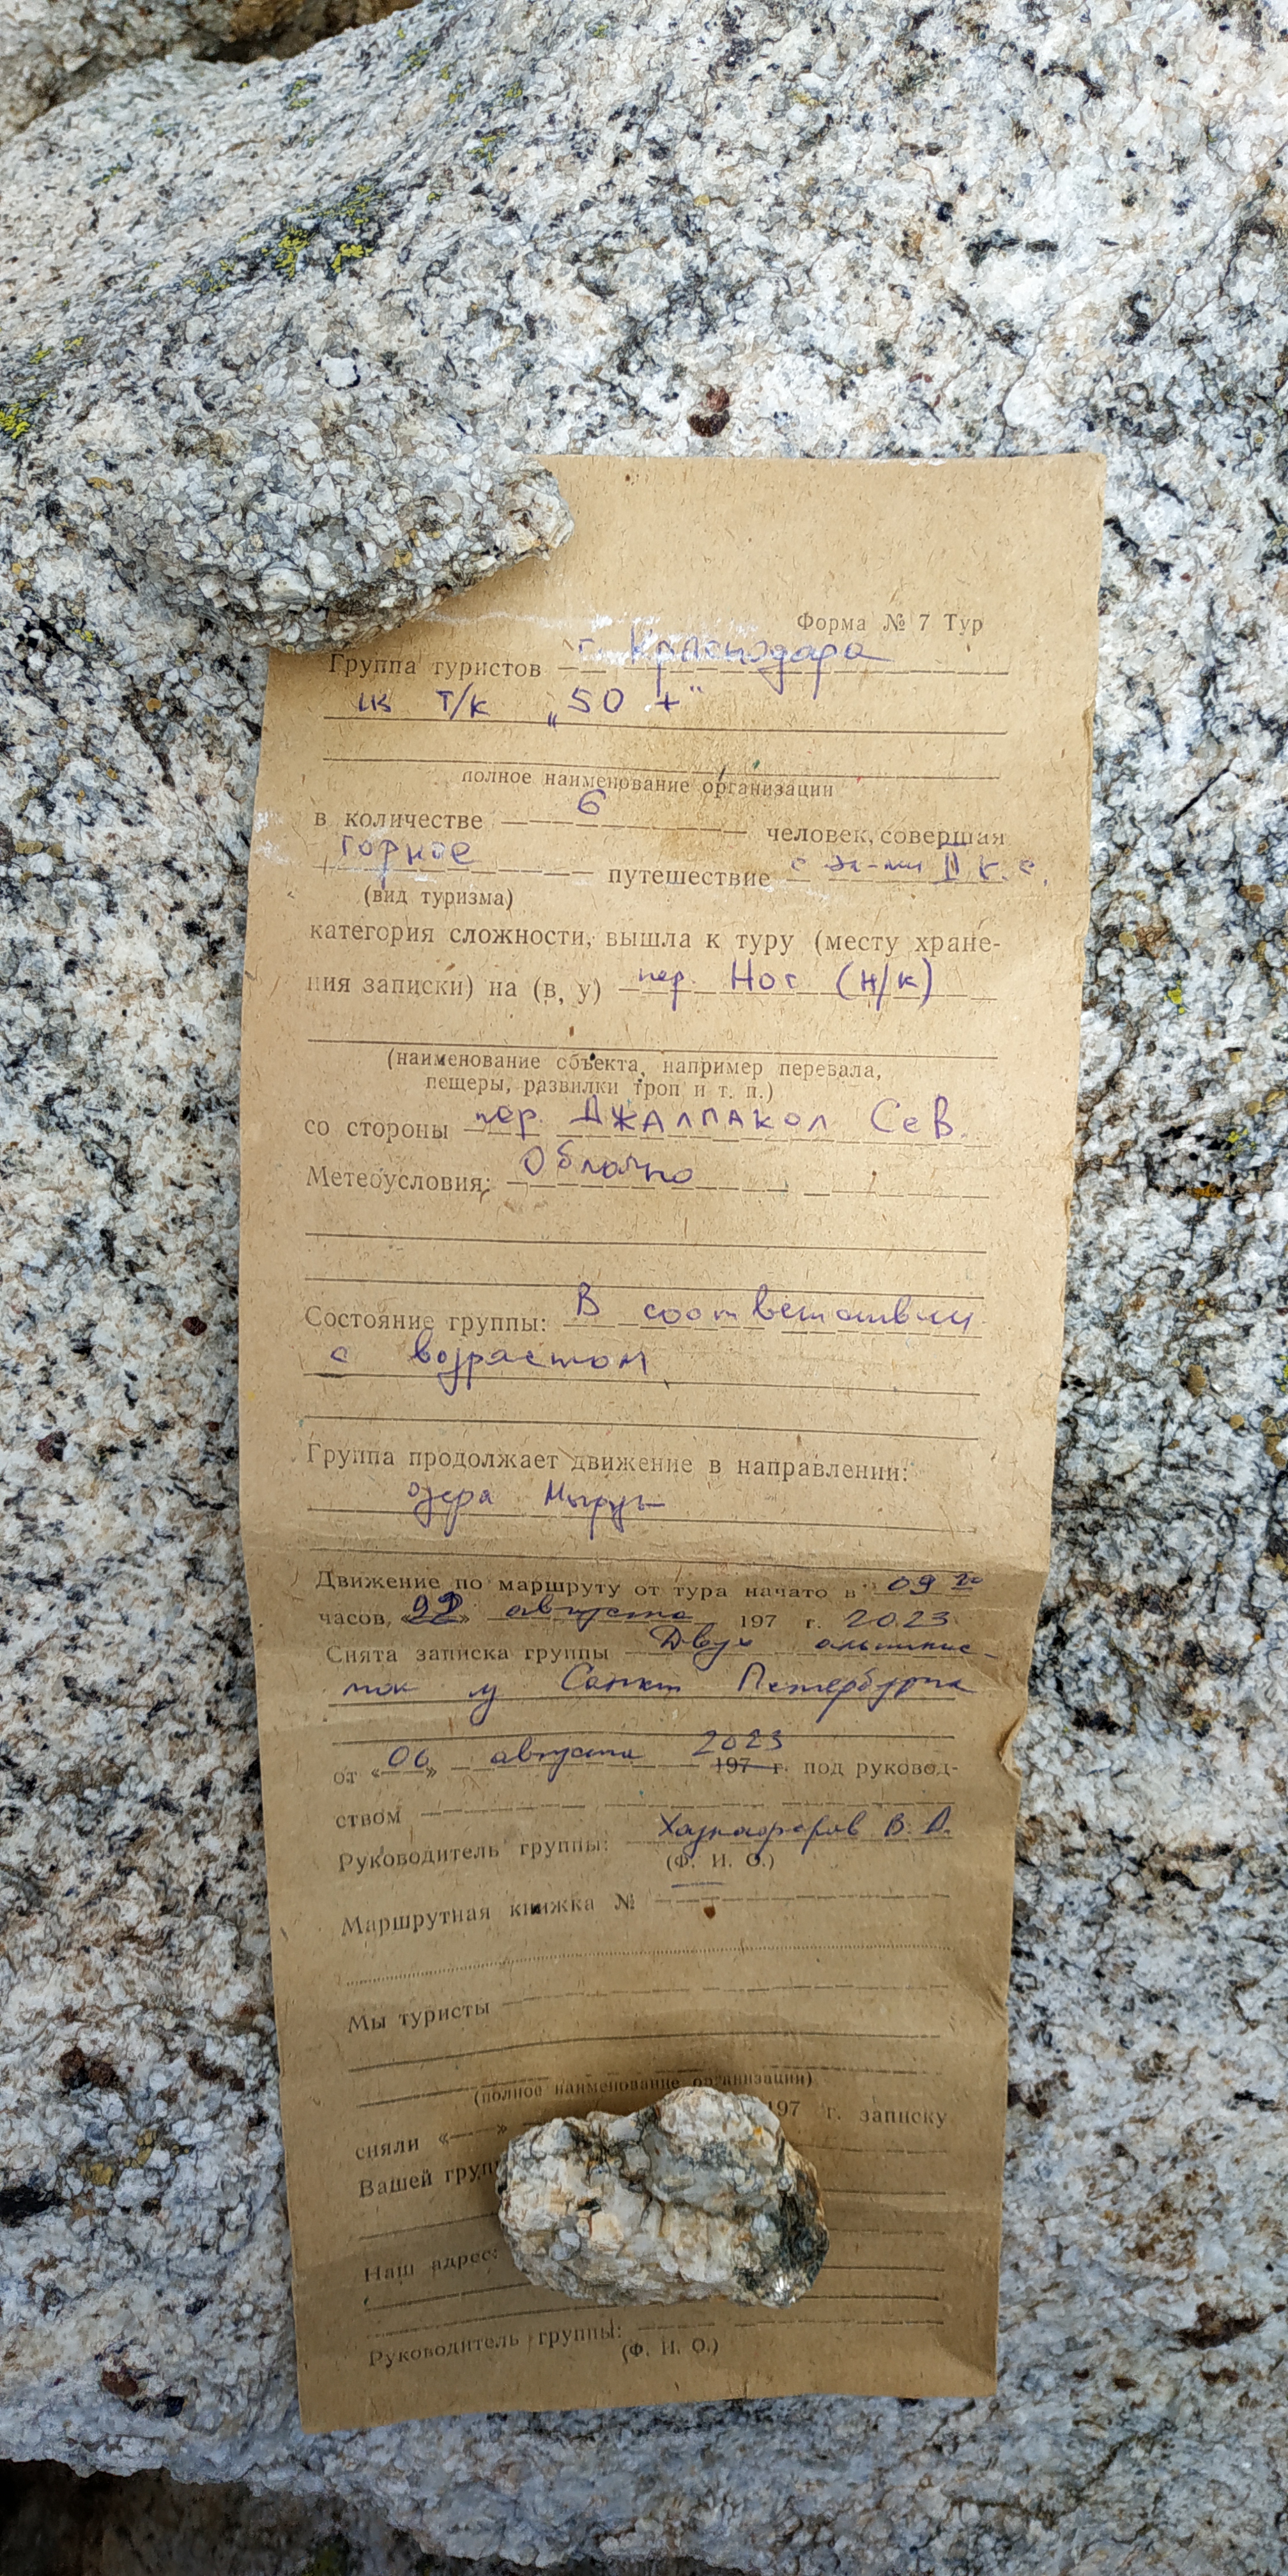 Форма № 7 Тур
Группа туристов г. Краснодара
т/к „50 +"
полное наименование организации
в количестве 6 человек, совершая
горное путешествие с эл-ми II к. с.
(вид туризма)
категория сложности, вышла к туру (месту хране-
ния записки) на (в, у) пер. Ног (н/к)
(наименование объекта, например перевала,
пещеры, развилки троп и т. п.)
со стороны пер. Джалпакол Сев.
Метеоусловия: Облачно
Состояние группы: В соответствии
с возрастом
Группа продолжает движение в направлении:
озера Мырды
Движение по маршруту от тура начато в 09 20
часов, « » августа 197 г. 2023
Снята записка группы Двух альпинис-
ток из Санкт Петербурга
от «06» августа 2023 197 г. под руковод-
ством
Руководитель группы: В. А.
(Ф. И. О.)
Маршрутная книжка № —
Мы туристы
(полное наименование организации)
сняли « » 197 г. записку
Вашей груп
Наш адрес:
Руководитель группы:
(Ф. И. О.)